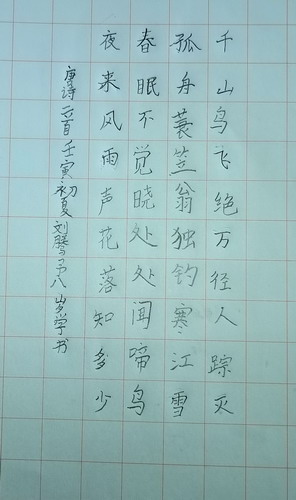 千山鸟飞绝万径人踪灭
孤舟蓑笠翁独钓寒江雪
春眠不觉晓处处闻啼鸟
夜来风雨声花落知多少
唐诗二首壬寅初夏刘八岁学书